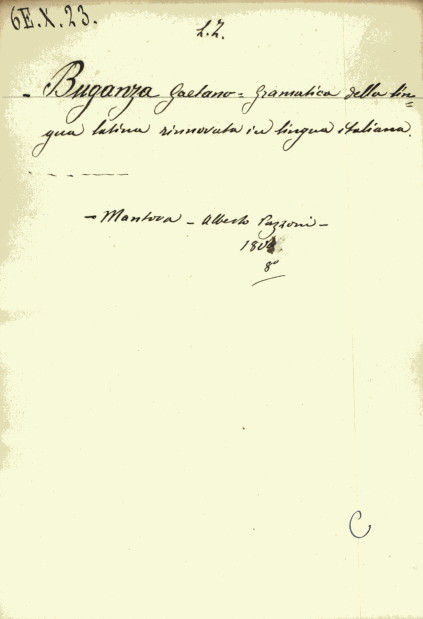 6E.X.23.
L.Z.
- Buganza Gaetano = Gramatica della lin=
gua latina rinnovata in lingua italiana.
- Mantova - Alberto Pazzoni -
8°
C